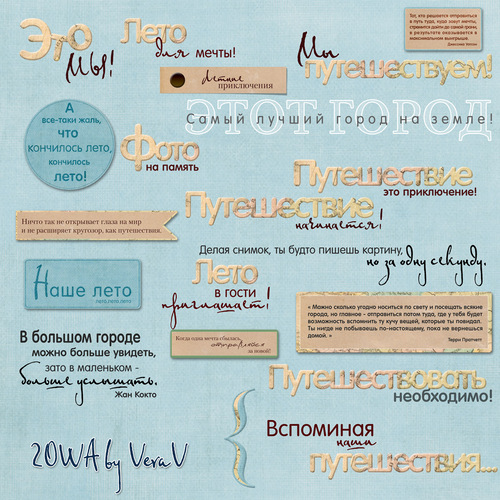 Это
мы!
Лето
для мечты!
Мы
путешествуем!
Тот, кто решается отправиться
в путь туда, куда зовут мечты,
стремится дойти до самой грани,
в результате оказывается в
максимальном выигрыше.
летние
приключения
ЭТОТ ГОРОД
Самый лучший город на земле!
А
все-таки жаль,
что
кончилось лето,
кончилось
лето!
Фото
на память
Путешествие
это приключение!
Путешествие
начинается!
Ничто так не открывает глаза на мир
и не расширяет кругозор, как путешествия.
Делая снимок, ты будто пишешь картину,
но за одну секунду.
Наше лето
лето,лето,лето
Лето
в гости
приглашает!
« Можно сколько угодно носиться по свету и посещать всякие
города, но главное - отправиться потом туда, где у тебя будет
возможность вспомнить ту кучу вещей, которые ты повидал.
Ты нигде не побываешь по-настоящему, пока не вернешься
домой. »
Терри Пратчетт
В большом городе
можно больше увидеть,
зато в маленьком -
больше услышать.
Жан Кокто
Когда одна мечта сбылась,
отправляйся
за новой!
Путешествовать
необходимо!
Вспоминая
наши
путешествия...
ZOWA by Vera V